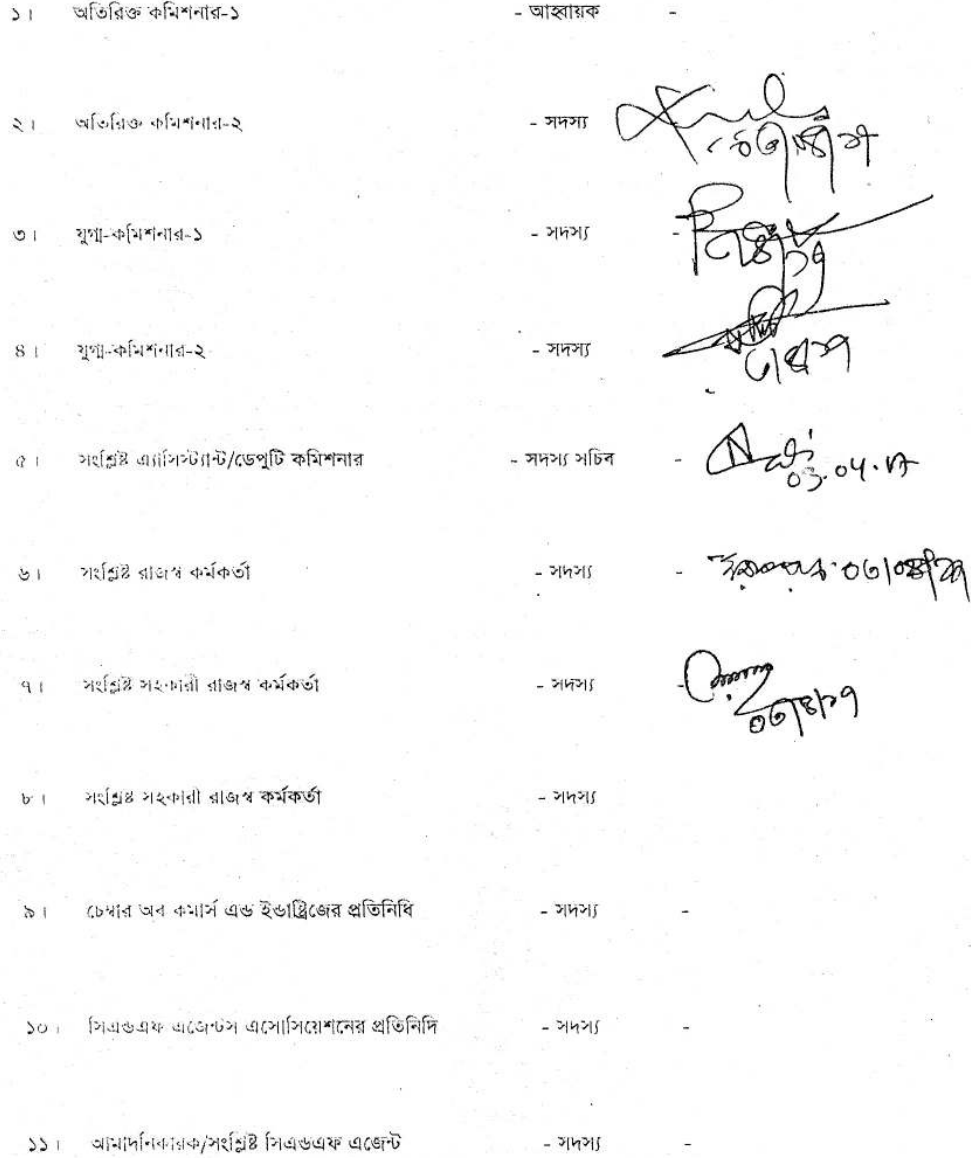 ১। অতিরিক্ত কমিশনার-১ - আহ্বায়ক -
২। অতিরিক্ত কমিশনার-২ - সদস্য
৩। যুগ্ম-কমিশনার-১ - সদস্য -
৪। যুগ্ম-কমিশনার-২ - সদস্য
৫। সংশ্লিষ্ট এ্যাসিস্ট্যান্ট/ডেপুটি কমিশনার - সদস্য সচিব - 03.04.17
৬। সংশ্লিষ্ট রাজস্ব কর্মকর্তা - সদস্য -
৭। সংশ্লিষ্ট সহকারী রাজস্ব কর্মকর্তা - সদস্য - ০৩/৪/১৭
৮। সংশ্লিষ্ট সহকারী রাজস্ব কর্মকর্তা - সদস্য
৯। চেম্বার অব কমার্স এন্ড ইন্ডাষ্ট্রিজের প্রতিনিধি - সদস্য -
১০। সিএন্ডএফ এজেন্টস এসোসিয়েশনের প্রতিনিদি - সদস্য -
১১। আমাদনিকারক/সংশ্লিষ্ট সিএন্ডএফ এজেন্ট - সদস্য -